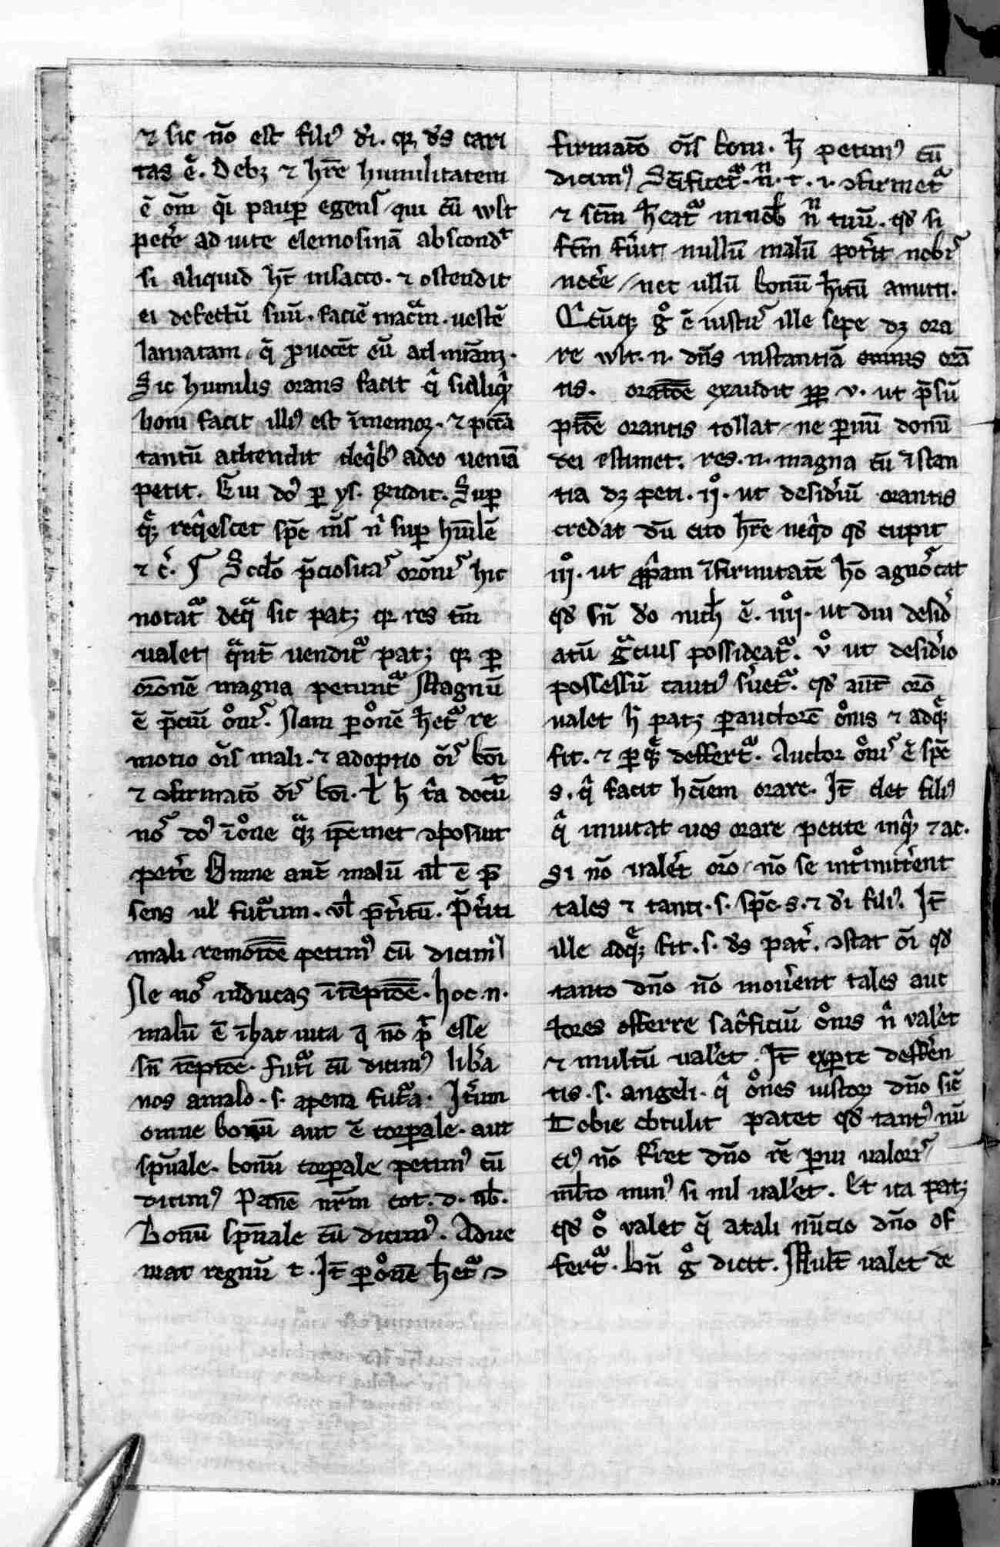 ⁊ sic nō est fili9 di. qr ds cari
tas ē. Debꝫ ⁊ hr̄e humilitatem
ē om̄ qi paup egens qui cū wlt
petere ad uite elemosinā abscondt
si aliquid ht̄ insacco. ⁊ ostendit
ei defectū suū. faciē macram. uestē
laniatam, q̄ prouocet eū ad miam.
Sic humilis orans facit qi sialiqd
boni facit illi9 est imemor. ⁊ pctā
tantū attendit deqb9 adeo ueniā
petit. Eui do9 p ys. gaudit. Sup
qꝫ reqiescet spc ms ni sup humilē
⁊ c. ¶ Scdo p̄ciositas orōnis hic
notatr deqa sic patꝫ qr res tm̄
ualet qant̄ uenditr patꝫ qr p
orōnē magna petuntr Magnū
ē p̄ciū ōnis. Nam p ōnē hetr re
motio ōis mali. ⁊ adoptio ōis boī
⁊ ꝯfirmatō ōis boī. ⁊ h ita docuit
nos do9 ī ōne qaꝫ ipemet ꝯposuit
petere Omne aut̄ malū ul ē p̄
sens ul futurum. ul p̄teritū. P̄teriti
mali remotōē petim9 cū dicim9
Ne nos inducas ī temptōē. hoc .n.
malū ē ī hac uita q nō pt̄ esse
sn̄ temptōē. futuri cū dicim9 libera
nos amalo .s. apena futura. Iterum
omne bonū aut ē corporale. aut
spūale. bonū corporale petim9 cū
dicim9 Panē nr̄m cot. d. nob.
Bonū spūale cū dicim9. Adue
niat regnū t. It̄ p ōnē hetr ꝯ
firmatō ōis boni. h petim9 cū
dicim9 Scificetr. n. t. i. ꝯfirmetr
⁊ scm̄ heatr in nob n tuū. qd si
fcm̄ fuit nullū malū poterit nobis
nocere, nec ullū bonū hitū amitti.
Cuiqꝫ go ē iustus ille sepe dꝫ ora
re wlt .n. dn̄s instantiā omnis orā
tis. oratōē exaudit pp v. ut p̄sū
ptōē orantis tollat, ne p uiū donū
dei estimet. res .n. magna cū istan
tia dꝫ peti. ijo. ut desideriū orantis
credat dū cito hr̄e neqto qd cupit
iijo. ut propam ifirmitatē ho agnoscat
qd sn̄ do nich ē. iiijo. ut diu desider
atū gacius possideatr. vo ut desiderio
possessū cauti9 suetr. qd aut̄ oro
ualet h patꝫ p auctorē ōnis ⁊ adqꝫ
fit. ⁊ p qꝫ deffertr. Auctor ōnis ē spc
.s. qi facit hōiem orare. It̄ det fili9
qi inuitat nos orare petite inqt ⁊ ac.
Si nō ualeret oro, nō se intromitterent
tales ⁊ tanti .s. spc .s. ⁊ di fili9. It̄
ille adqꝫ fit .s. ds pater. ꝯstat ōi qd
tanto dn̄o nō mouerent tales auc
tores offerre sacrificiū ōnis ni ualet
⁊ multū ualet. It̄ ex parte defferen
tis .s. angeli. qi ōnes iustor dn̄o sic
Tobie obtulit patet qd tant9 nū
ci9 nō ferret dn̄o rē parui ualoris
mlto min9 si nil ualet. Et ita patꝫ
qd o ualet q̄ atali nūcio dn̄o of
fertr. bn̄ go dicit. Mult̄ ualet de